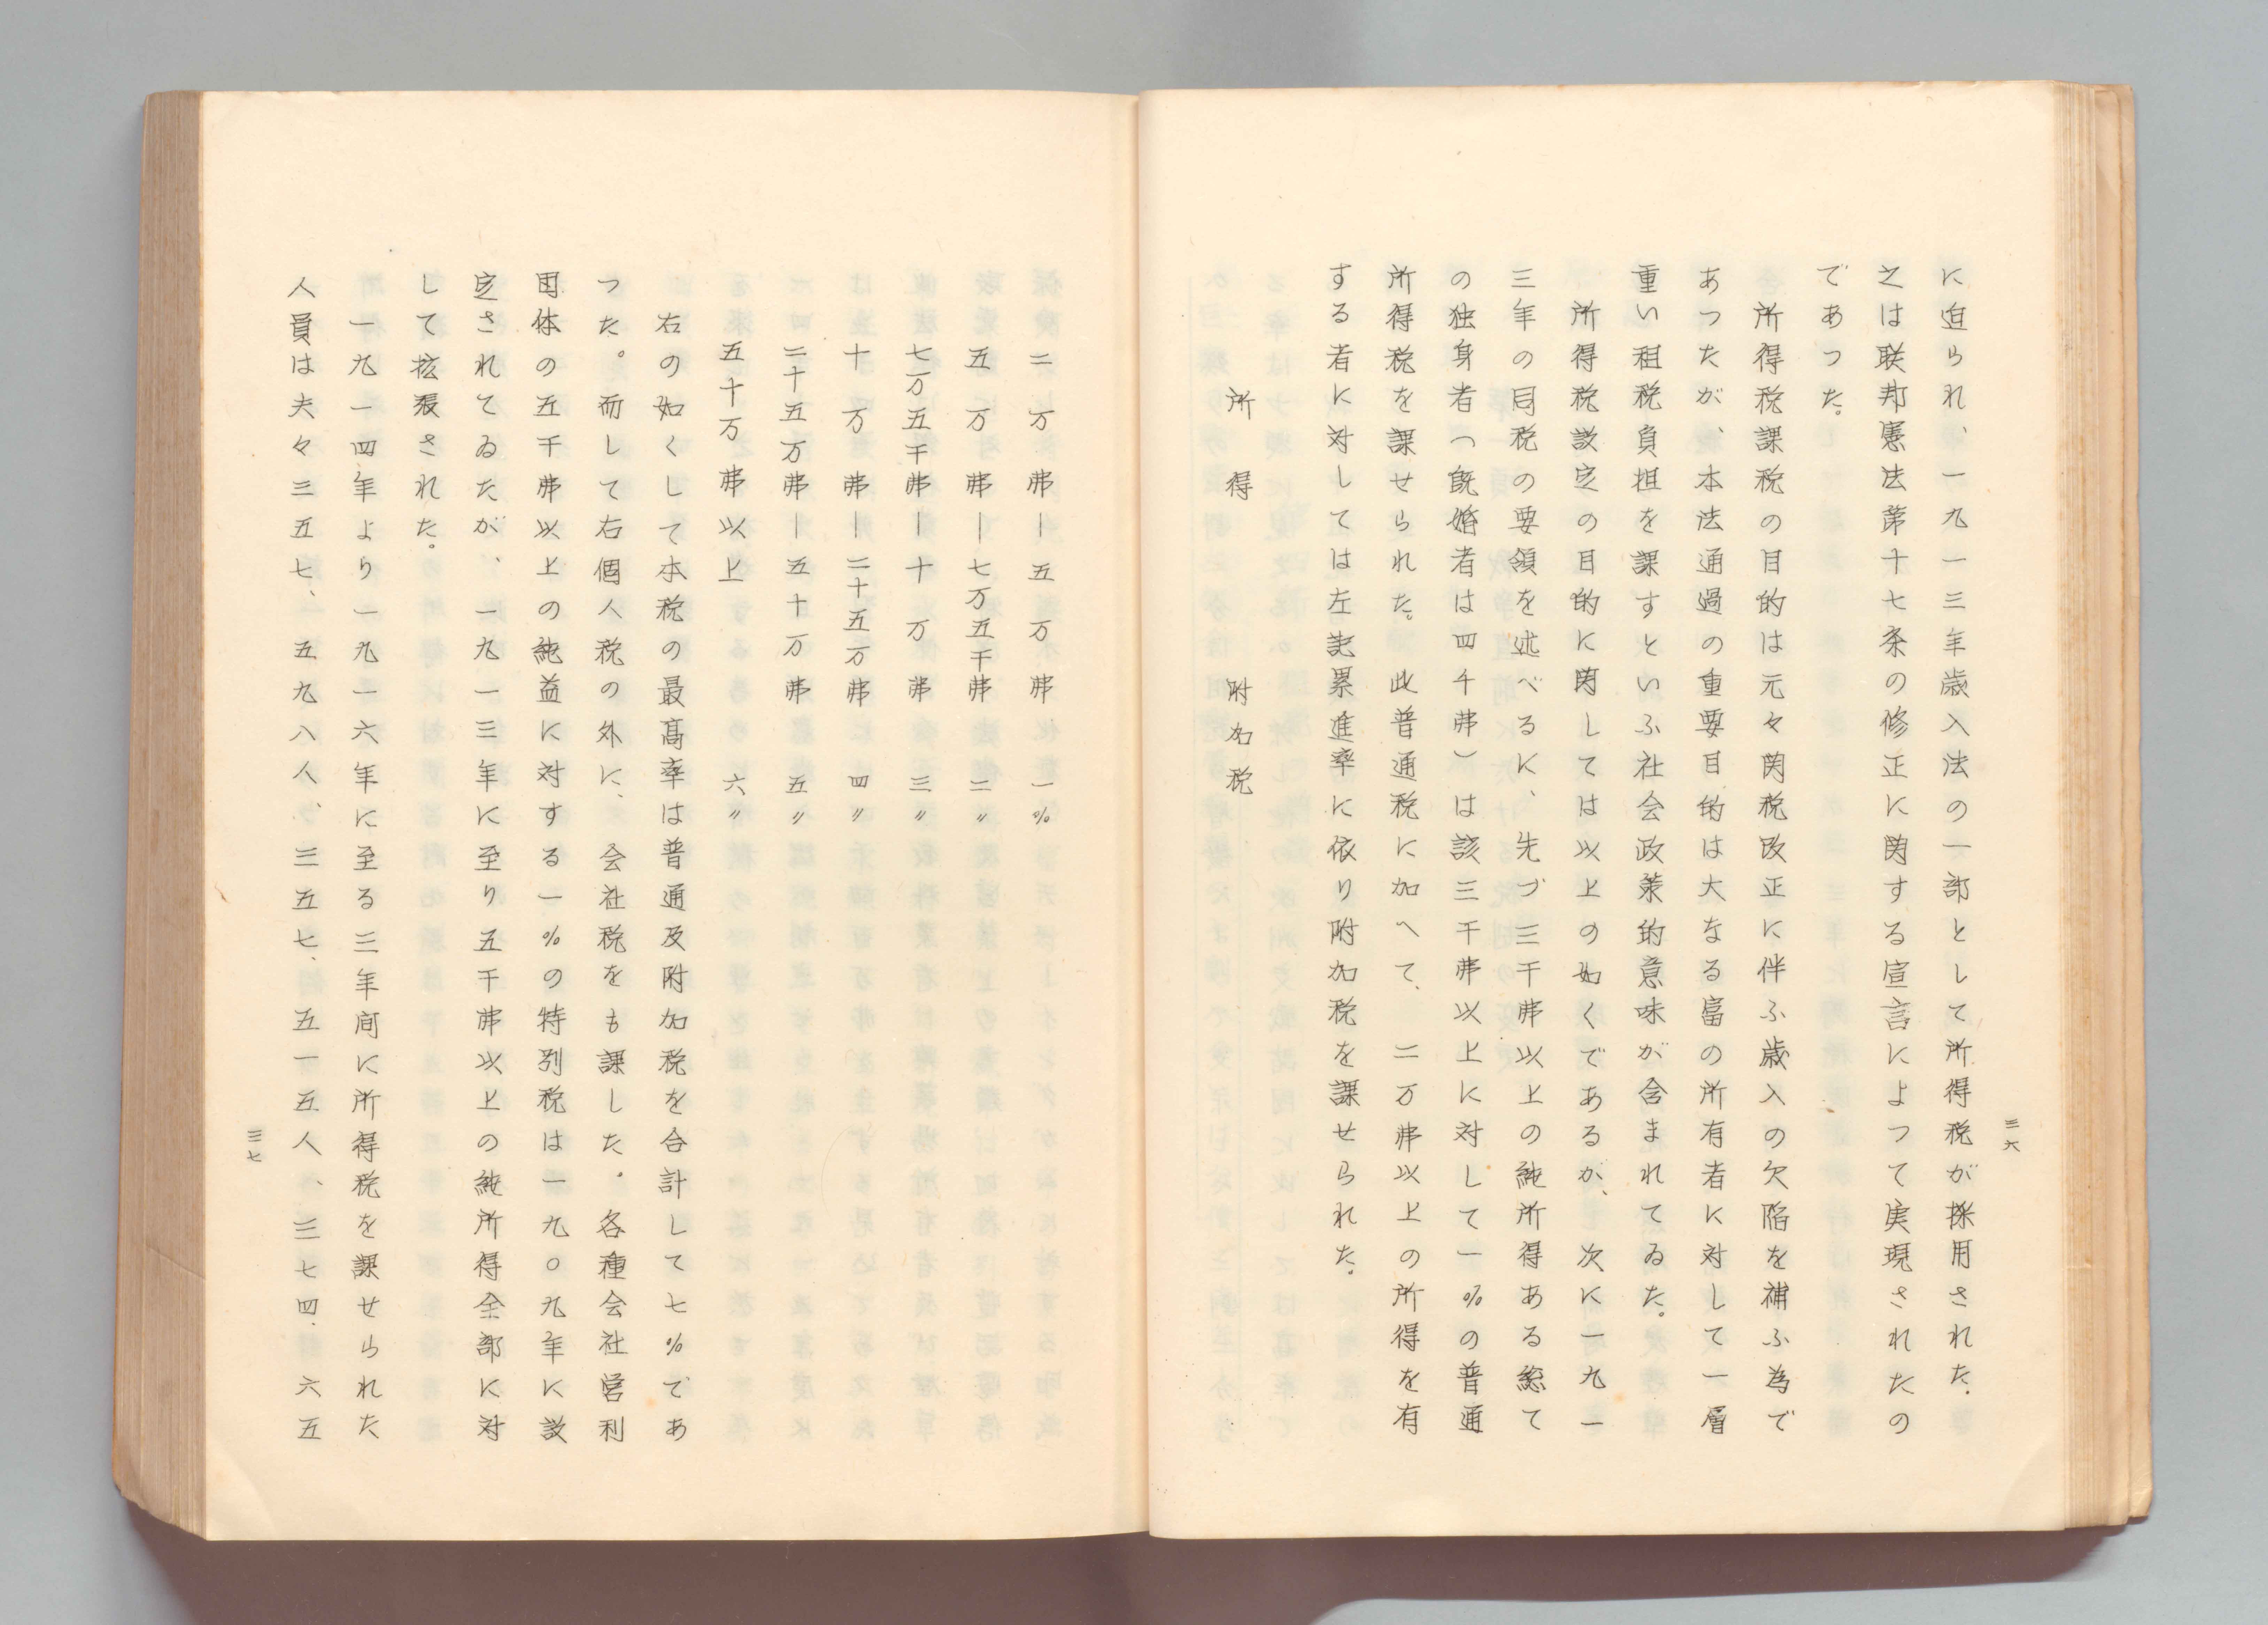 三六
に迫られ、一九一三年歳入法の一部として所得税が採用された。
之は联邦憲法第十七条の修正に関する宣言によつて実現されたの
であつた。
所得税課税の目的は元々関税改正に伴ふ歳入の欠陥を補ふ為で
あつたが、本法通過の重要目的は大なる富の所有者に対して一層
重い租税負担を課すといふ社会政策的意味が含まれてゐた。
所得税設定の目的に関しては以上の如くであるが、次に一九一
三年の同税の要領を述べるに、先づ三千弗以上の純所得ある総て
の独身者（既婚者は四千弗）は該三千弗以上に対して一％の普通
所得税を課せられた。此普通税に加へて、二万弗以上の所得を有
する者に対しては左記累進率に依り附加税を課せられた。
所得　附加税
二万弗—五万弗　一％
五万弗—七万五千弗　二〃
七万五千弗—十万弗　三〃
十万弗—二十五万弗　四〃
二十五万弗—五十万弗　五〃
五十万弗以上　六〃
右の如くして本税の最高率は普通及附加税を合計して七％であ
つた。而して右個人税の外に、会社税をも課した。各種会社営利
団体の五千弗以上の純益に対する一％の特別税は一九〇九年に設
定されてゐたが、一九一三年に至り五千弗以上の純所得全部に対
して拡張された。
一九一四年より一九一六年に至る三年間に所得税を課せられた
人員は夫々三五七、五九八人、三五七、五一五人、三七四、六五
三七